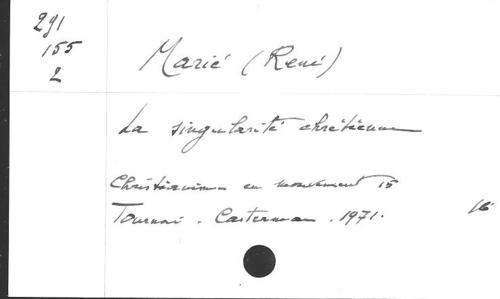 291
155
2
Marié (René)
La singularité chrétienne
Christianisme en mouvement 15
Tournai. Casterman. 1971.
16